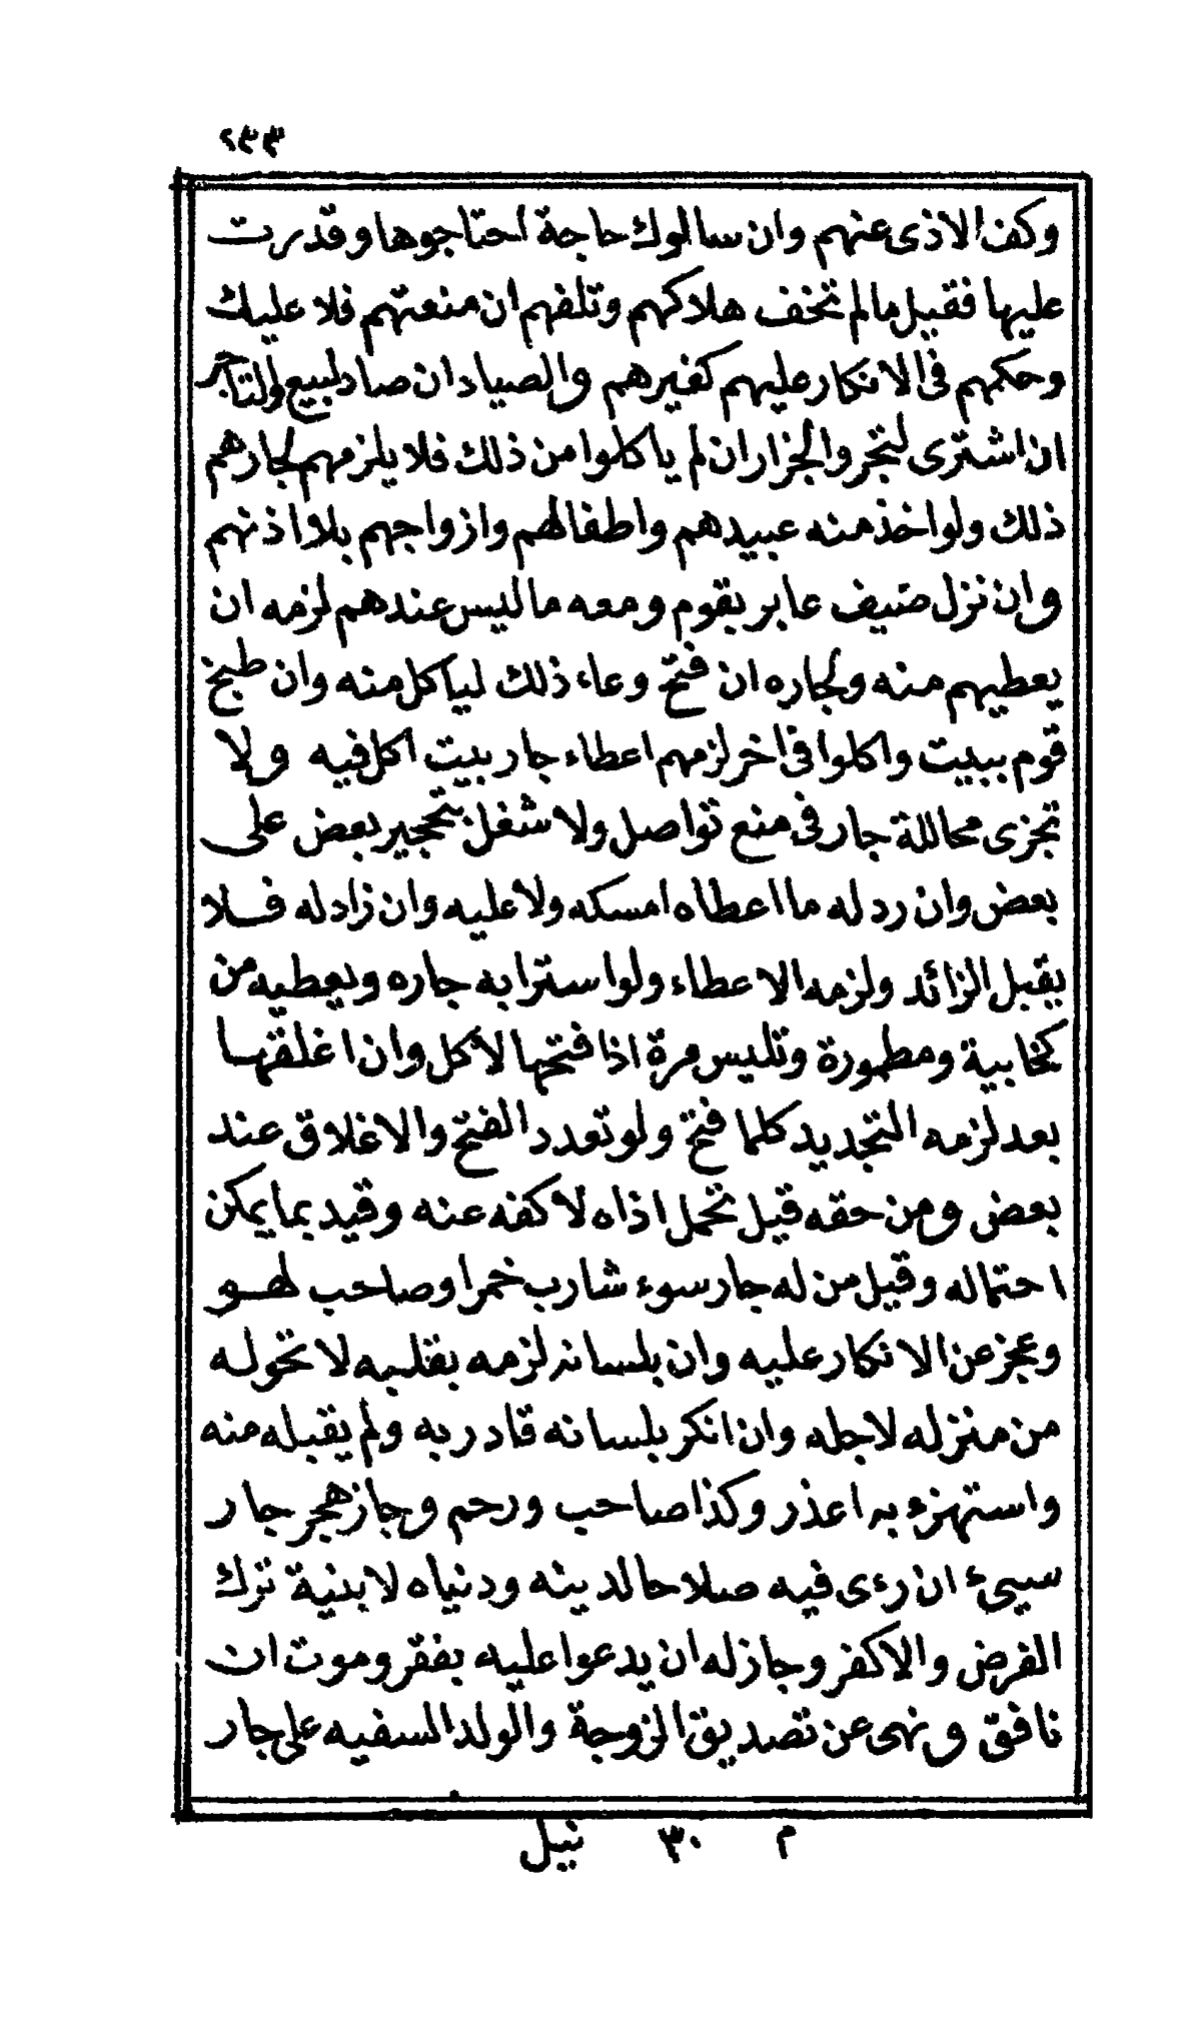 ٢٣٣
وكف الاذى عنهم وان سالوك حاجة احتاجوها وقدرت
عليها فقيل مالم تخف هلاكهم وتلفهم ان منعتهم فلا عليك
وحكمهم فى الانكار عليهم كغيرهم والصياد ان صاد لبيع والتاجر
ان اشترى لتجر والجزار ان لم ياكلوا من ذلك فلا يلزمهم لجارهم
ذلك ولو اخذ منه عبيدهم واطفالهم وازواجهم بلا اذنهم
وان نزل ضيف عابر بقوم ومعه ما ليس عندهم لزمه ان
يعطيهم منه ولجاره ان فتح وعاء ذلك لياكل منه وان طبخ
قوم ببيت واكلوا فى اخر لزمهم اعطاء جار بيت اكل فيه ولا
تجزى محاللة جار فى منع تواصل ولا شغل بتحجير بعض على
بعض وان رد له ما اعطاه امسكه ولا عليه وان زاد له فلا
يقبل الزائد ولزمه الاعطاء ولو استرابه جاره ويعطيه من
كخابية ومطمورة وتليس مرة اذا فتحها لاكل وان اغلقها
بعد لزمه التجديد كلما فتح ولو تعدد الفتح والاغلاق عند
بعض ومن حقه قيل تحمل اذاه لا كفه عنه وقيد بما يمكن
احتماله وقيل من له جار سوء شارب خمر او صاحب لهو
وعجز عن الانكار عليه وان بلسانه لزمه بقلبه لا تحوله
من منزله لاجله وان انكر بلسانه قادر به ولم يقبله منه
واستهزء به اعذر وكذا صاحب ورحم وجاز هجر جار
سيىء ان رءى فيه صلاحا لدينه ودنياه لا بنية ترك
الفرض والاكفر وجاز له ان يدعوا عليه بفقر وموت ان
نافق ونهى عن تصديق الزوجة والولد السفيه على جار
م ٣٠ نيل